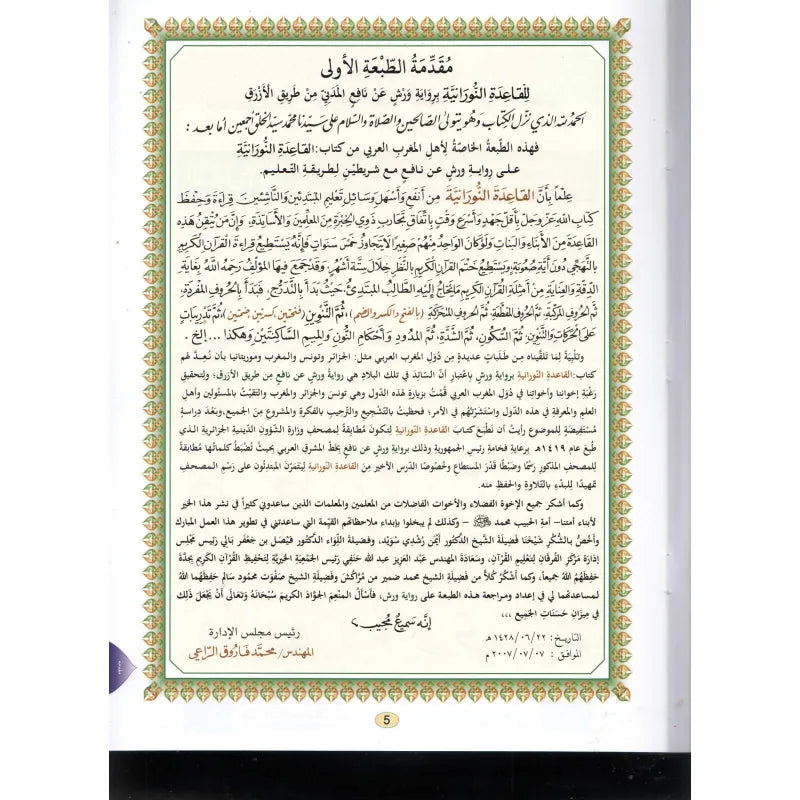 مُقَدِّمَةُ الطَّبْعَةِ الأولى
لِلْقَاعِدَةِ النُّورَانِيَّةِ بِرِوَايَةِ وَرْشٍ عَنْ نَافِعٍ المَدَنِيِّ مِنْ طَرِيقِ الْأَزْرَقِ
الحمد لله الذي نزل الكتاب وهو يتولى الصالحين والصلاة والسلام على سيدنا محمد سيد الخلق أجمعين أما بعد :
فهذه الطبعة الخاصة لأهل المغرب العربي من كتاب: القاعدة النُّورَانِيَّة
على رواية ورش عن نافع مع شريطين لطريقة التعليم.
علمًا بأن القاعدة النُّورَانِيَّة من أنفع وأسهل وسائل تعليم المبتدئين والناشئين قراءة وحفظ
كتاب الله عز وجل بأقل جهد وأسرع وقت باتفاق تجارب ذوي الخبرة من المعلمين والأساتذة، وإن من يتقن هذه
القاعدة من الأبناء والبنات ولو كان الواحد منهم صغيرًا لا يتجاوز خمس سنوات فإنه يستطيع قراءة القرآن الكريم
بالتهجي دون أية صعوبة، ويستطيع ختم القرآن الكريم بالنظر خلال ستة أشهر، وقد جمع فيها المؤلف رحمه الله بغاية
الدقة والعناية من أمثلة القرآن الكريم ما يحتاج إليه الطالب المبتدئ، حيث بدأ بالتدرج، فبدأ بالحروف المفردة،
ثم الحروف المركبة، ثم الحروف المقطعة، ثم الحروف المتحركة (بالفتح والكسر والضم)، ثم التنوين (فتحتين، كسرتين ضمتين)، ثم تدريبات
على الحركات والتنوين، ثم السكون، ثم الشدة، ثم المدود وأحكام النون والميم الساكنتين وهكذا ... إلخ .
وتلبية لما تلقيناه من طلبات عديدة من دول المغرب العربي مثل: الجزائر وتونس والمغرب وموريتانيا بأن نعد لهم
كتاب: القاعدة النُّورَانِيَّة برواية ورش باعتبار أن السائد في تلك البلاد هي رواية ورش عن نافع من طريق الأزرق؛ ولتحقيق
رغبة إخواننا وأخواتنا في دول المغرب العربي قمت بزيارة لهذه الدول وهي تونس والجزائر والمغرب والتقيت بالمسئولين وأهل
العلم والمعرفة في هذه الدول واستشرتهم في الأمر؛ فحظيت بالتشجيع والترحيب بالفكرة والمشروع من الجميع، وبعد دراسة
مستفيضة للموضوع رأيت أن نطبع كتاب القاعدة النُّورَانِيَّة لتكون مطابقة لمصحف وزارة الشؤون الدينية الجزائرية الذي
طبع عام ١٤١٩هـ برعاية فخامة رئيس الجمهورية وذلك برواية ورش عن نافع بخط المشرق العربي بحيث تضبط كلماتها مطابقة
للمصحف المذكور رسمًا وضبطًا قدر المستطاع وخصوصًا الدرس الأخير من القاعدة النُّورَانِيَّة ليتمرن المبتدئون على رسم المصحف
تمهيدًا للبدء بالتلاوة والحفظ منه.
وكما أشكر جميع الإخوة الفضلاء والأخوات الفاضلات من المعلمين والمعلمات الذين ساعدوني كثيرًا في نشر هذا الخير
لأبناء أمتنا- أمة الحبيب محمد ﷺ – وكذلك لم يبخلوا بإبداء ملاحظاتهم القيمة التي ساعدتني في تطوير هذا العمل المبارك
وأخص بالشكر شيخنا فضيلة الشيخ الدكتور أيمن رشدي سويد، وفضيلة اللواء الدكتور فيصل بن جعفر بالي رئيس مجلس
إدارة مركز الفرقان لتعليم القرآن، وسعادة المهندس عبد العزيز عبد الله حنفي رئيس الجمعية الخيرية لتحفيظ القرآن الكريم بجدة
حفظهم الله جميعاً، كما أشكر كلاً من فضيلة الشيخ محمد ضمير من مراكش وفضيلة الشيخ صفوت محمود سالم حفظهما الله
لمساعدتهما لي في إعداد ومراجعة هذه الطبعة على رواية ورش، فأسأل المنعم الجواد الكريم سبحانه وتعالى أن يجعل ذلك
في ميزان حسنات الجميع ،،،
إنه سميع مجيب
التاريخ : ١٤٢٨/٠٦/٢٢ هـ
الموافق : ٢٠٠٧/٠٧/٠٧ م
رئيس مجلس الإدارة
المهندس/ محمد فاروق الراعي
5